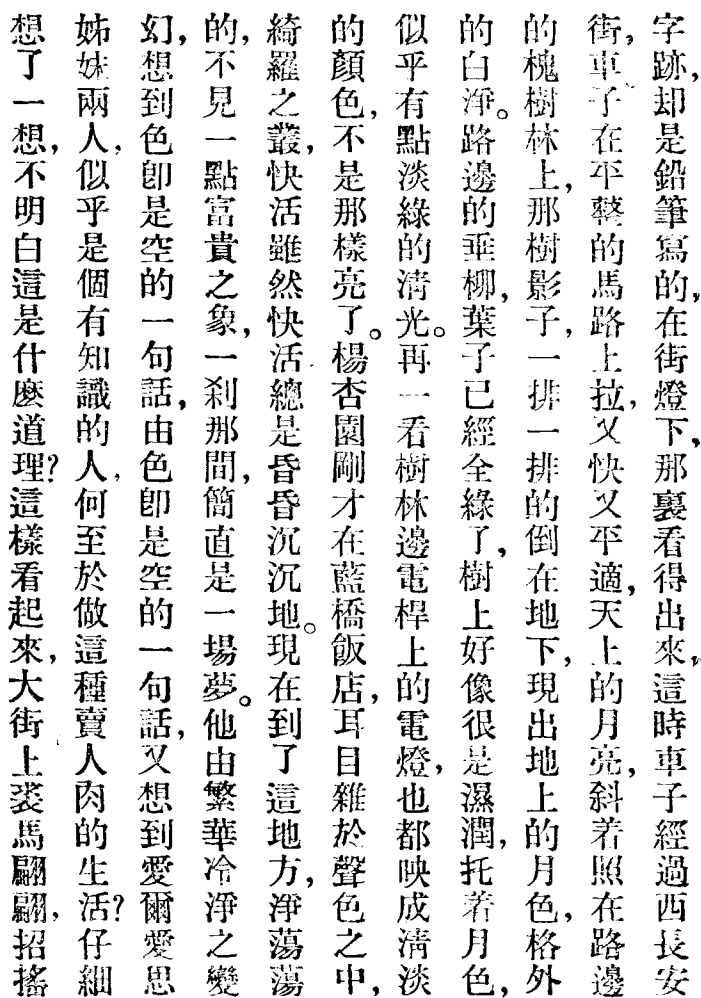 字跡,却是鉛筆寫的,在街燈下,那裏看得出來,這時車子經過西長安
街,車子在平整的馬路上拉,又快又平適,天上的月亮,斜着照在路邊
的槐樹林上,那樹影子,一排一排的倒在地下,現出地上的月色,格外
的白淨。路邊的垂柳,葉子已經全綠了,樹上好像很是濕潤,托着月色,
似乎有點淡綠的清光。再一看樹林邊電桿上的電燈,也都映成清淡
的顏色,不是那樣亮了。楊杏園剛才在藍橋飯店,耳目雜於聲色之中,
綺羅之叢,快活雖然快活,總是昏昏沉沉地。現在到了這地方,淨蕩蕩
的,不見一點富貴之象,一刹那間,簡直是一場夢。他由繁華冷淨之變
幻,想到色卽是空的一句話,由色卽是空的一句話,又想到愛爾愛思
姊妹兩人,似乎是個有知識的人,何至於做這種賣人肉的生活?仔細
想了一想,不明白這是什麽道理?這樣看起來,大街上裘馬翩翩,招搖